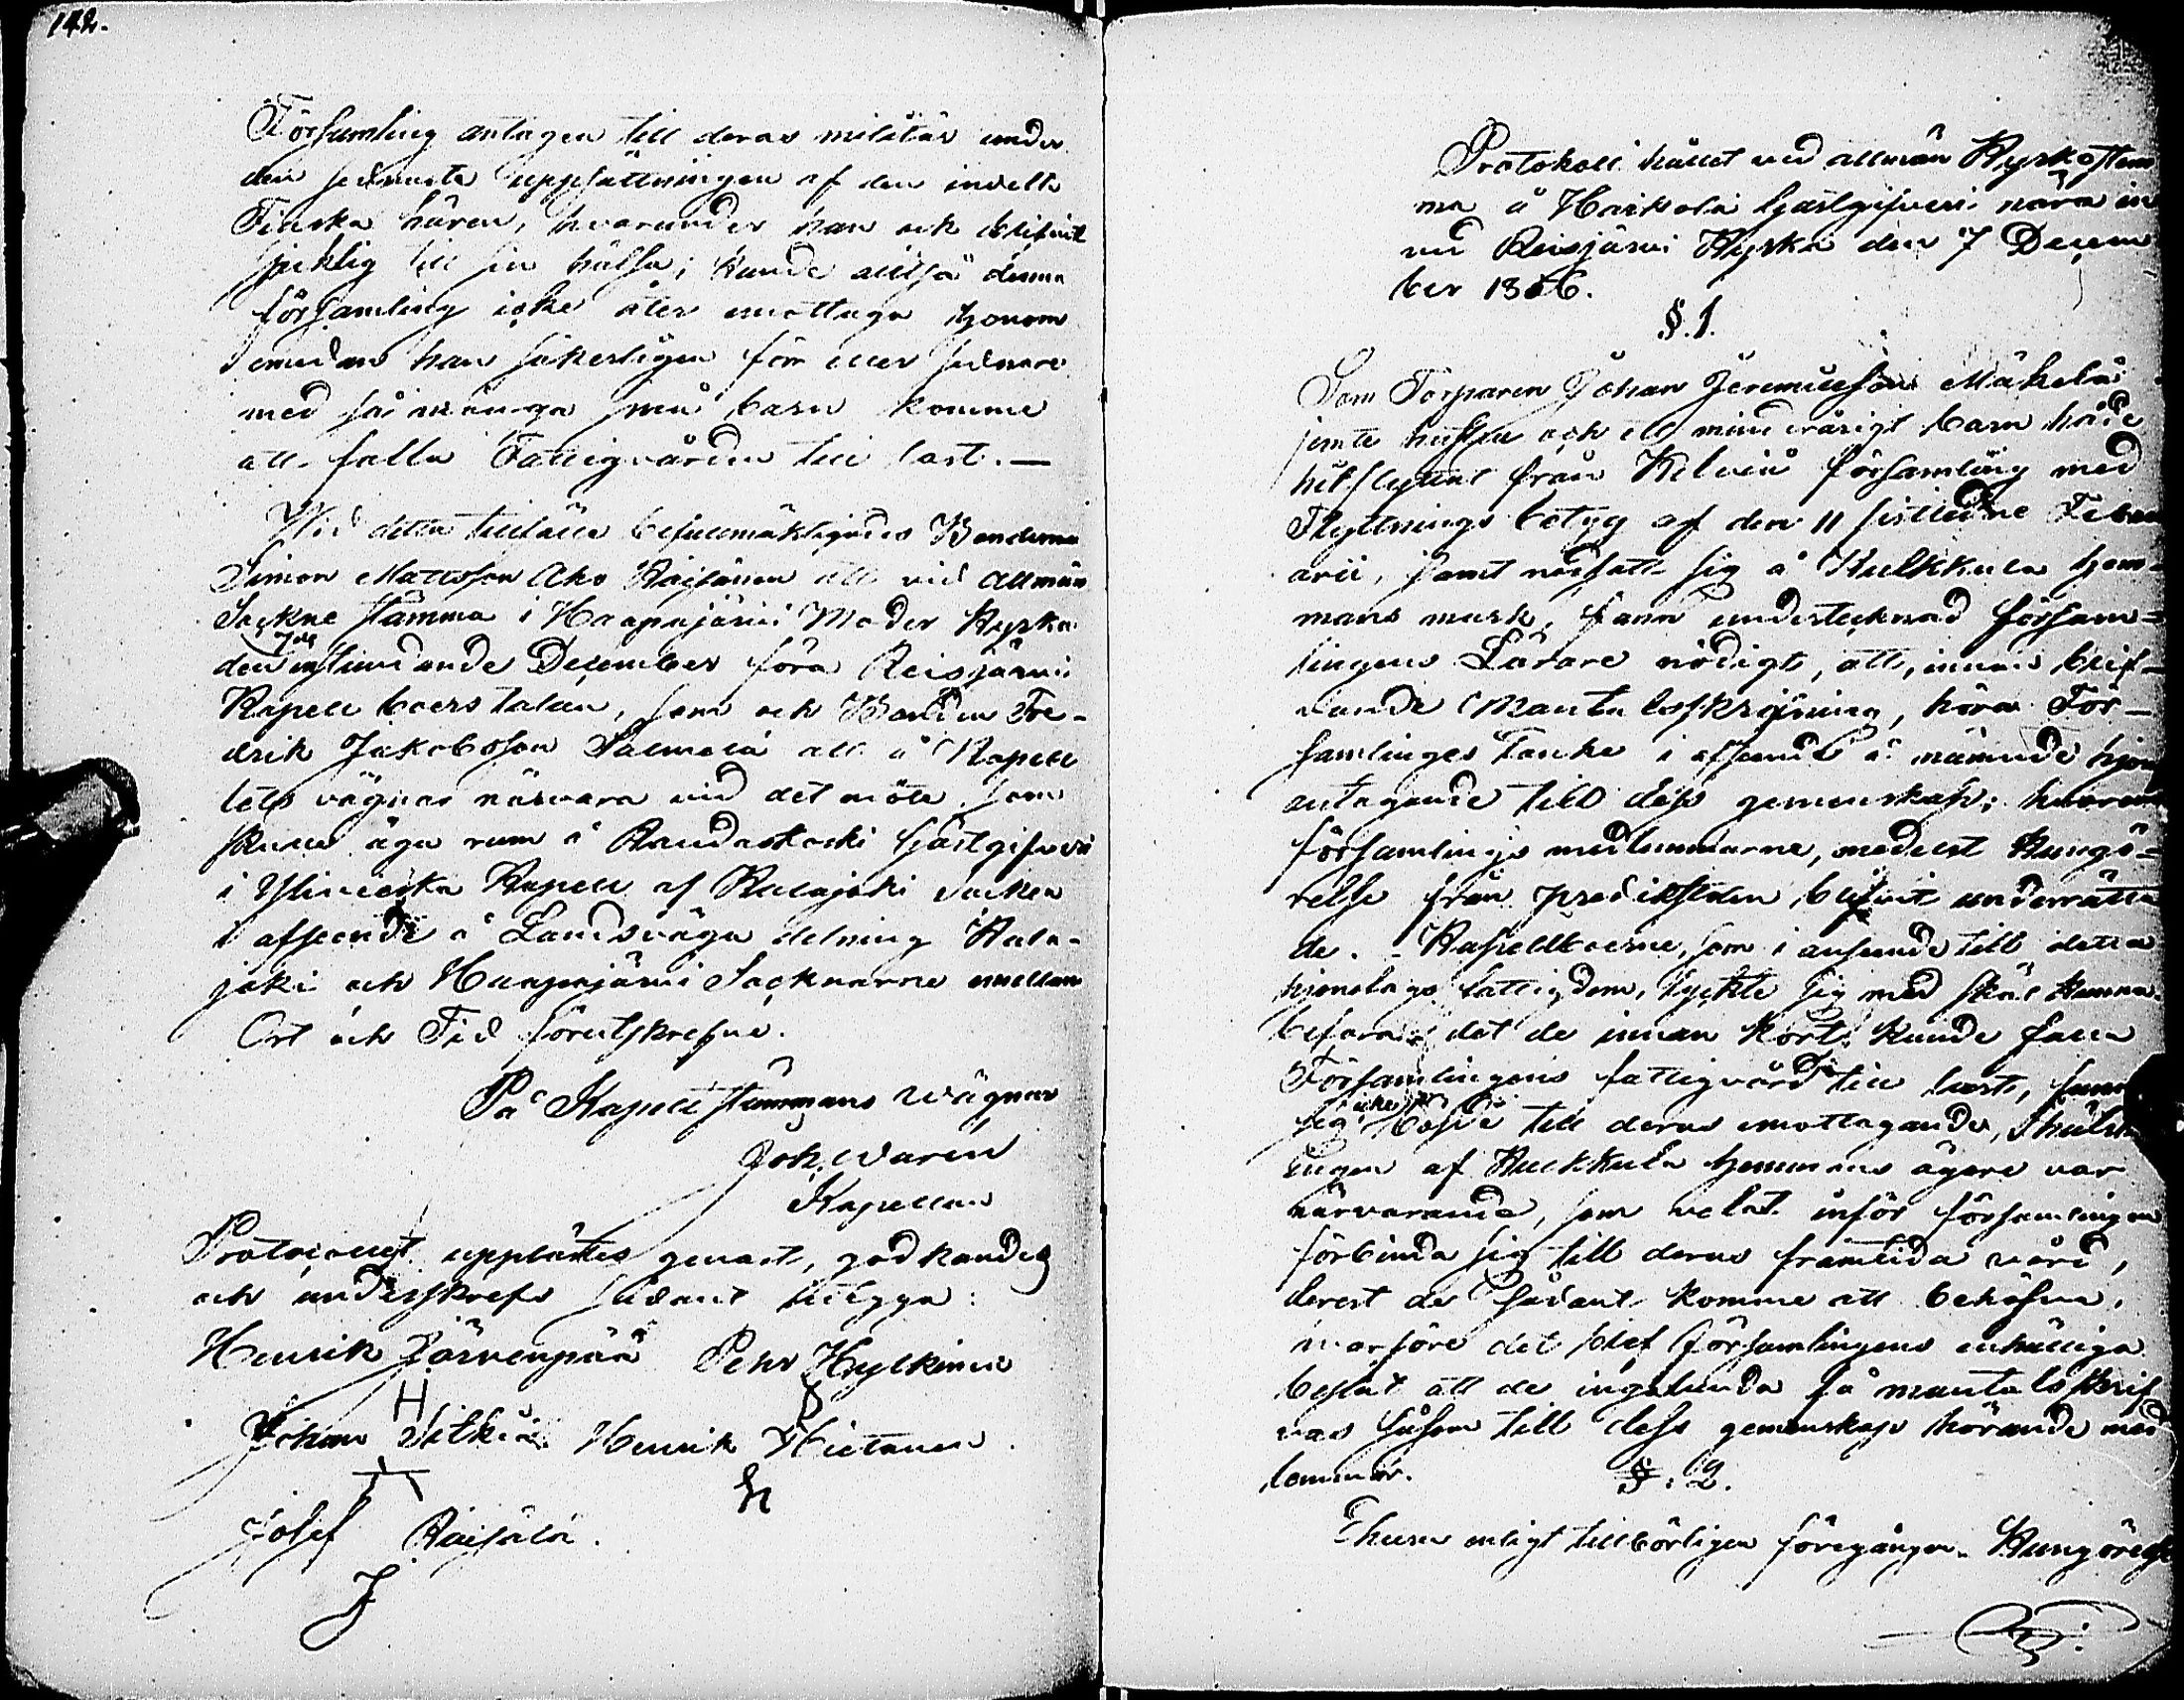 142.
Församling antagen till deras militär under
den sednaste uppsättningen af den indelta
Finska hären, hvarunder han och blifvit
sjuklig till sin hälsa; kunde alltså denna
församling icke åter emottaga honom
emedan han säkerligen förr eller sednare
med så många små barn komme
att falla Fattigvården till last. —
Vid detta tillfälle befullmäktigades Bonden
Simon Mattsson Aho Räisänen att vid allmän
Sockne stämma i Haapajärvi Moder Kyrka
den 7de instundande December föra Reisjärvi
Kapell boers talan, som och Bonden Fre-
drik Jakobsson Salmela att å Kapel
lets vägnar närvara vid det möte, som
skulle äga rum å Raudaskoski Gästgifveri
i Ylivieska Kapell af Kalajoki Socken
i afseende å Landsväga delning Kala-
joki och Haapajärvi Socknarne emellan
Ort och Tid förutskrefne.
På Kapell stämmans vägnar
Joh. Warén
Kapellan
Protocollet upplästes genast, godkändes
och underskrefs sådant tillgga:
Henrik Järvenpää Pehr Hylkinen
H
Johan Sitkiä Henrik Hietanen
H
Josef Räisälä.
J
Protokoll hållet vid allmän Kyrkostäm
ma å Harkola Gästgifveri nära in
vid Reisjärvi Kyrka den 7 Decem
ber 1856.
§. 1.
Som Torparen Johan Jeremiasson Mäkelä
jemte hustru och ett minderårigt barn hade
hitflyttat från Kelviå församling med
Flyttnings betyg af den 11 sistledne Febru
arii, samt nedsatt sig å Kulkkula hem-
mans mark, fann undertecknad försam-
lingens Lärare nödigt, att, innan blif-
vande Mantalsskrifning, höra För-
samlinges tanke i afseende å nämnde hjon
antagande till dess gemenskap; hvarom
församlings medlemmarne, medelst Kungö-
relse från predikstolen blifvit underrätta
de. - Kapellboerne, som i anseende till detta
hjonelags fattigdom, tyckte sig med skäl kunna
befara det de innan kort kunde falla
Församlingens fattigvård till last, funno
sig icke höfde till deras emottagande, Ehuru
ingen af Kulkkula hemmans ägare var
närvarande, som velat inför församlingen
förbinda sig till deras framtida vård,
derest de sådant komme att behöfva,
hvarföre det blef församlingens enhälliga
beslut att de ingalunda få mantalsskrif
vas såsom till dess gemenskap hörande med
lemmar.
§. 2.
Ehuru enligt tillbörligen föregången Kungörelse